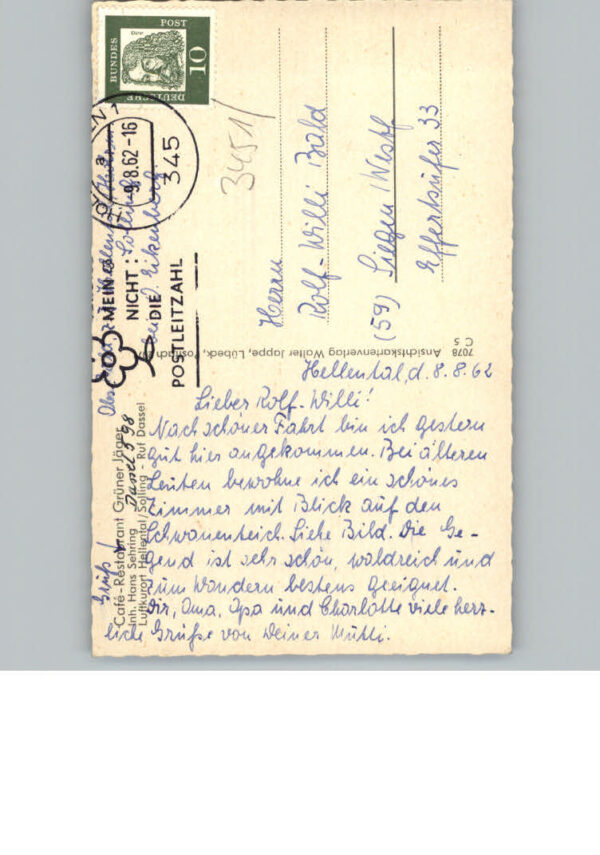 Hellental, d. 8.8.62
Lieber Rolf-Willi!
Nach schöner Fahrt bin ich gestern
gut hier angekommen. Bei älteren
Leuten bewohne ich ein schönes
Zimmer mit Blick auf den
Schwanenteich. Siehe Bild. Die Ge-
gend ist sehr schön, waldreich und
zum Wandern bestens geeignet.
Dir, Oma, Opa und Charlotte viele herz-
liche Grüße von Deiner Mutti.
Café-Restaurant Grüner Jäger
Inh. Hans Sehring
Dassel 598
Luftkurort Hellental/Solling - Ruf Dassel
Gruß
7078 Ansichtskartenverlag Walter Jappe, Lübeck, Postfach
C 5
DEUTSCHE
BUNDES
POST
10
-9.8.62-16
345
a
NICHT:
DIE
POSTLEITZAHL
3451
Herrn
Rolf-Willi Bald
(59) Siegen/Westf
Effertsufer 33